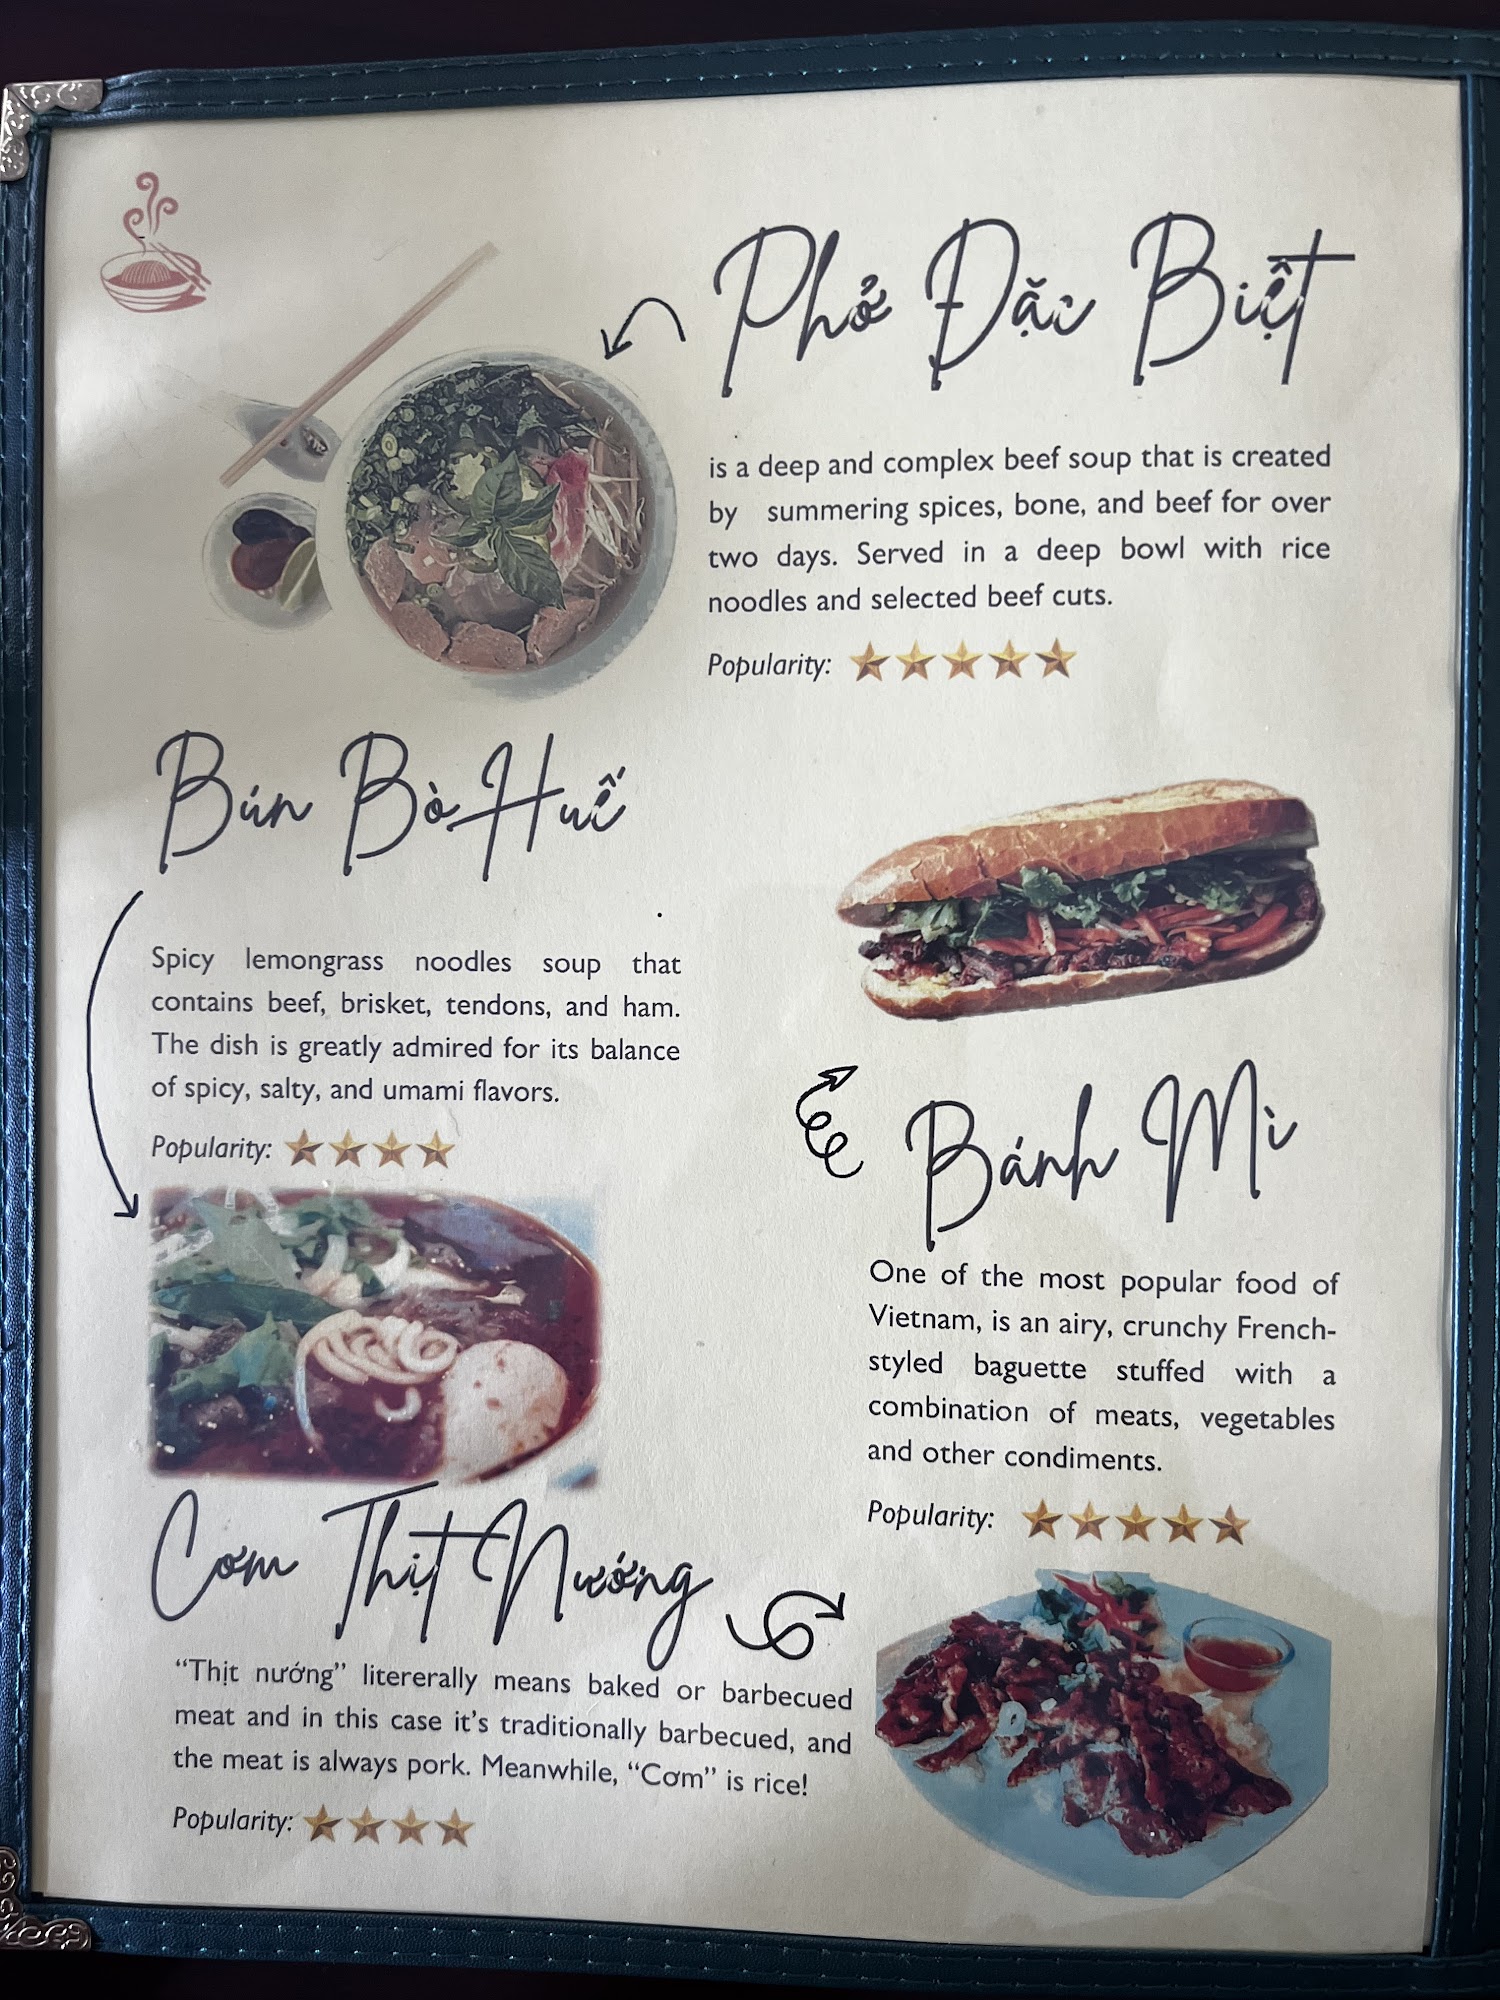 Phở Đặc Biệt
is a deep and complex beef soup that is created
by summering spices, bone, and beef for over
two days. Served in a deep bowl with rice
noodles and selected beef cuts.
Popularity:
Bún Bò Huế
Spicy lemongrass noodles soup that
contains beef, brisket, tendons, and ham.
The dish is greatly admired for its balance
of spicy, salty, and umami flavors.
Popularity:
Bánh Mì
One of the most popular food of
Vietnam, is an airy, crunchy French-
styled baguette stuffed with a
combination of meats, vegetables
and other condiments.
Popularity:
Cơm Thịt Nướng
“Thịt nướng” litererally means baked or barbecued
meat and in this case it’s traditionally barbecued, and
the meat is always pork. Meanwhile, “Cơm” is rice!
Popularity: